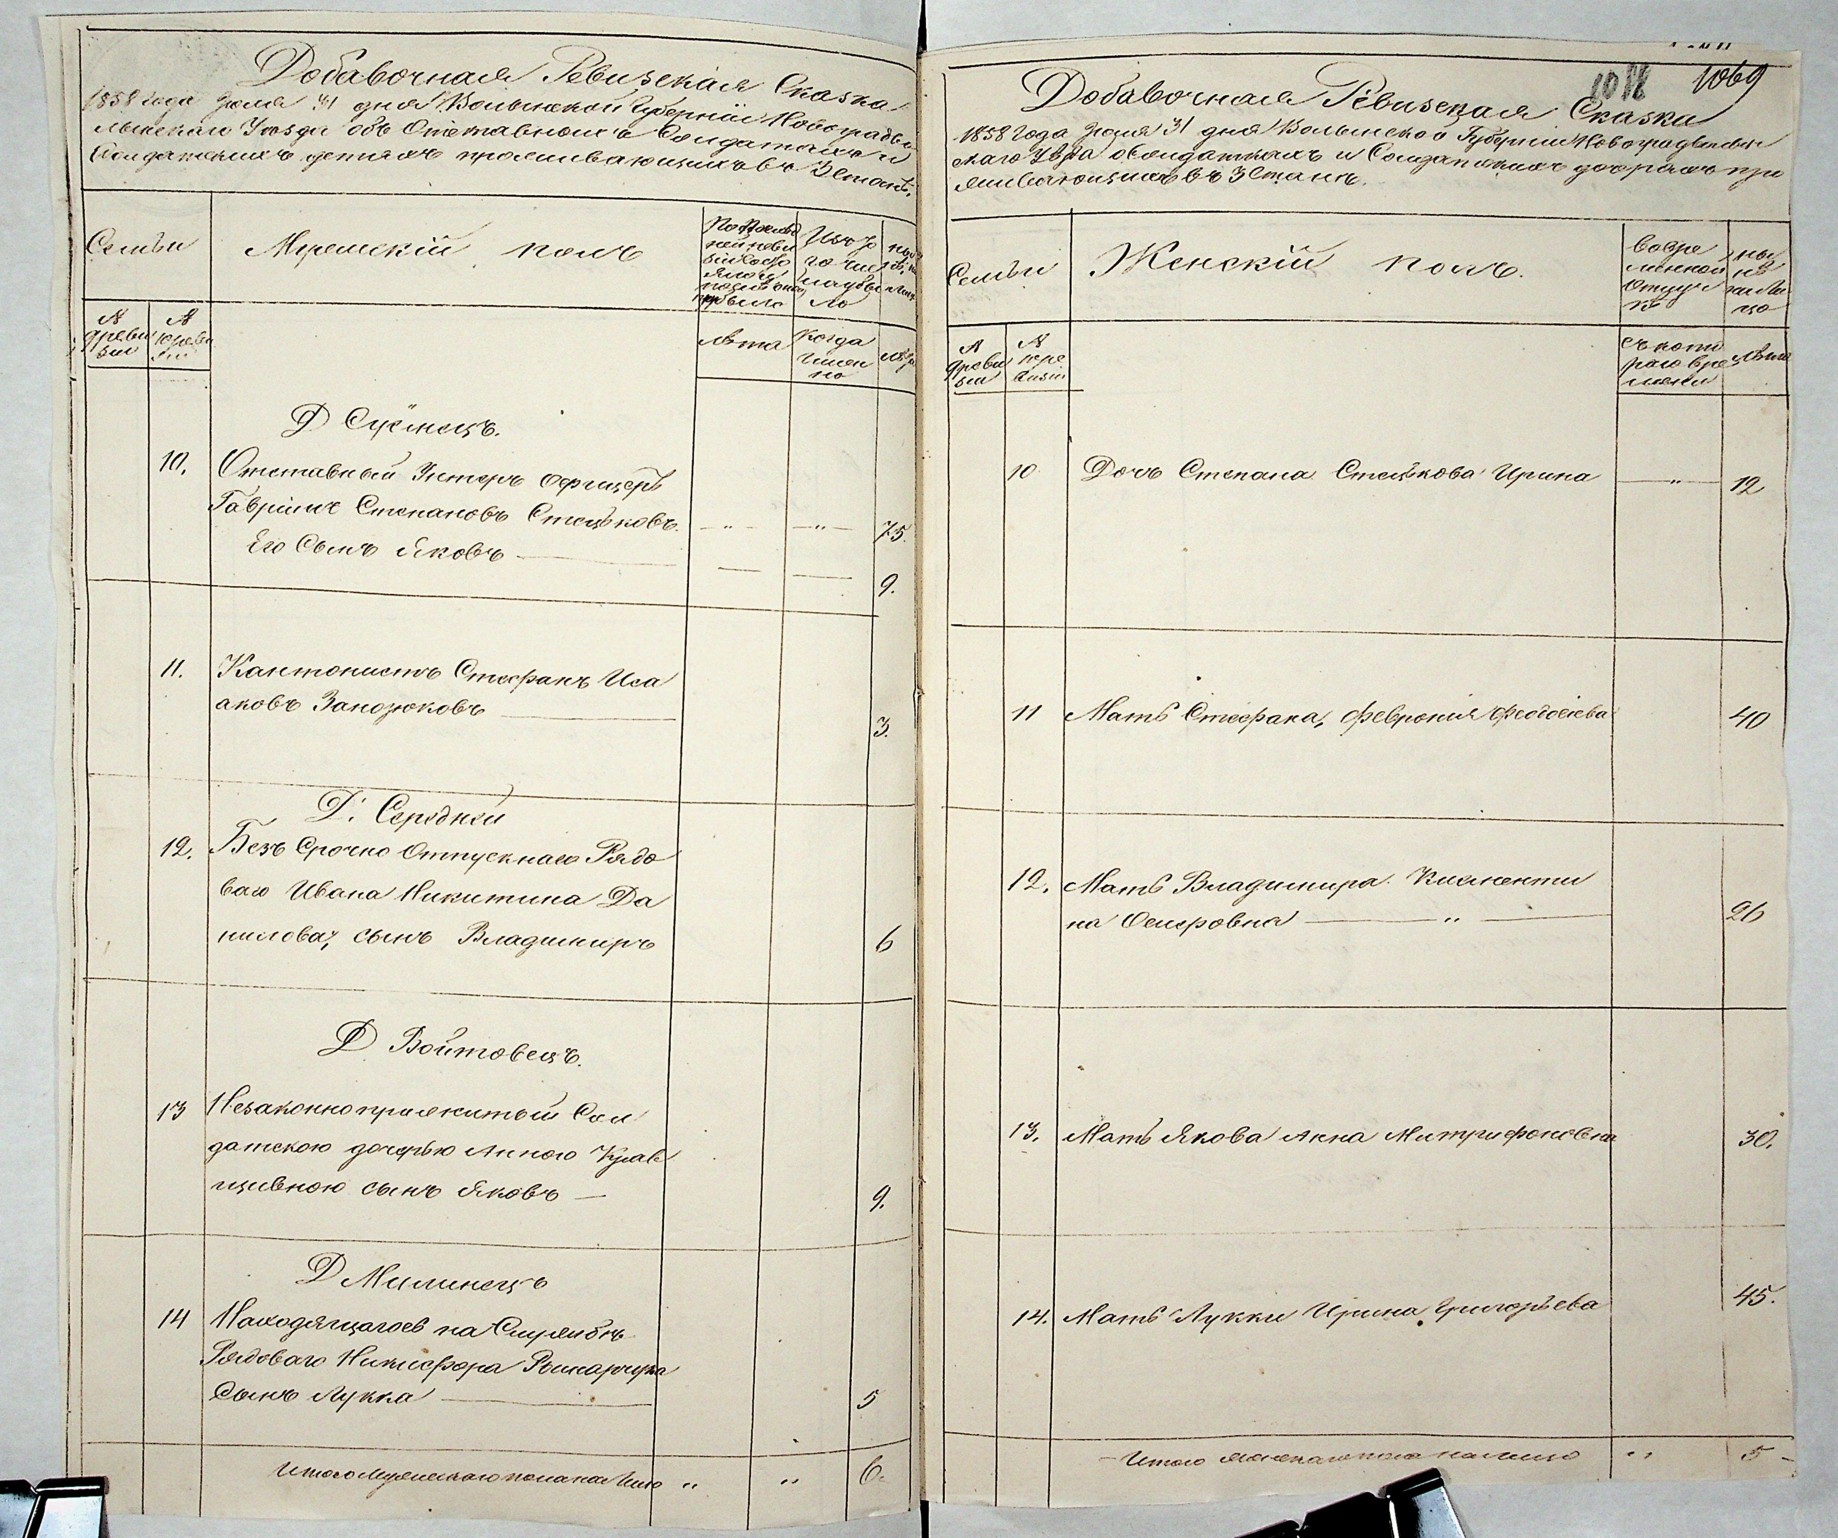 Добавочная Ревизская Сказка
1858 года Июля 31 дня Волынской Губерніи Новоградво
лынскаго Уѣзда объ Отставномъ Солдатахъ и
Солдатскихъ детяхъ проживающихъ въ 3 Станѣ.
Семьи
Мужескій полъ
Изъ то
го чис
ла выбы
ло
№
№
Лѣта
когда
имен
но
Лѣта
Д Суёмецъ.
10. Отставный Унтеръ офицеръ
Гаврiилъ Степановъ Стецьковъ. — „ — — „ — 75.
Его Сынъ Яковъ — 9.
11. Кантонистъ Стефанъ Иса
аковъ Занозюковъ — 3.
Д. Середней
12. Безъ Срочно Отпускнаго Рядо
ваго Ивана Никитина Да
нилова, сынъ Владимиръ 6
Д Войтовецъ.
13 Незаконноприжитый Сол
датскою дочерью Анною Крав
цивною сынъ Яковъ — 9.
Д Милинецъ
14 Находящагося на Службѣ
Рядоваго Никифора Рымарчука
Сынъ Лукка — 5
Итого Мужескаго пола на лицо „ „ 6.
1069
Добавочная Ревизская Сказка
1858 Года Июля 31 дня Волынской Губерніи Новоградволын
скаго Уѣзда о солдаткахъ и Солдатскихъ дочеряхъ про
живающихъ въ 3 Станѣ.
Семьи
Женскій полъ.
во вре
менной
отлуч
кѣ
ны
нѣ
на ли
цо
№
№
съ кото
раго вре
мени
Лѣта
10 Дочь Степана Стецькова Ирина — „ — 12
11 Мать Стефана, Февронія Феодосіева 40
12. Мать Владимира Клементи
на Осиповна — „ — 26
13. Мать Якова Анна Митрифоновна 30.
14. Мать Лукки Ирина Григорьева 45.
Итого женскаго пола на лицо „ 5 –